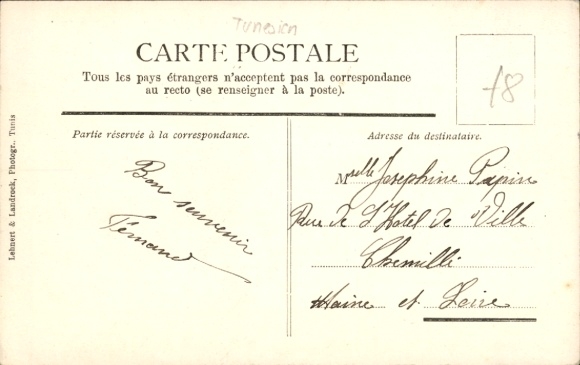 Tunesien
CARTE POSTALE
Tous les pays étrangers n'acceptent pas la correspondance
au recto (se renseigner à la poste).
18
Partie réservée à la correspondance.
Adresse du destinataire.
Lehnert & Landrock, Photogr., Tunis
Bon souvenir
Fernand
Melle Josephine Papin
Rue de l'Hotel de Ville
Chemillé
Maine et Loire